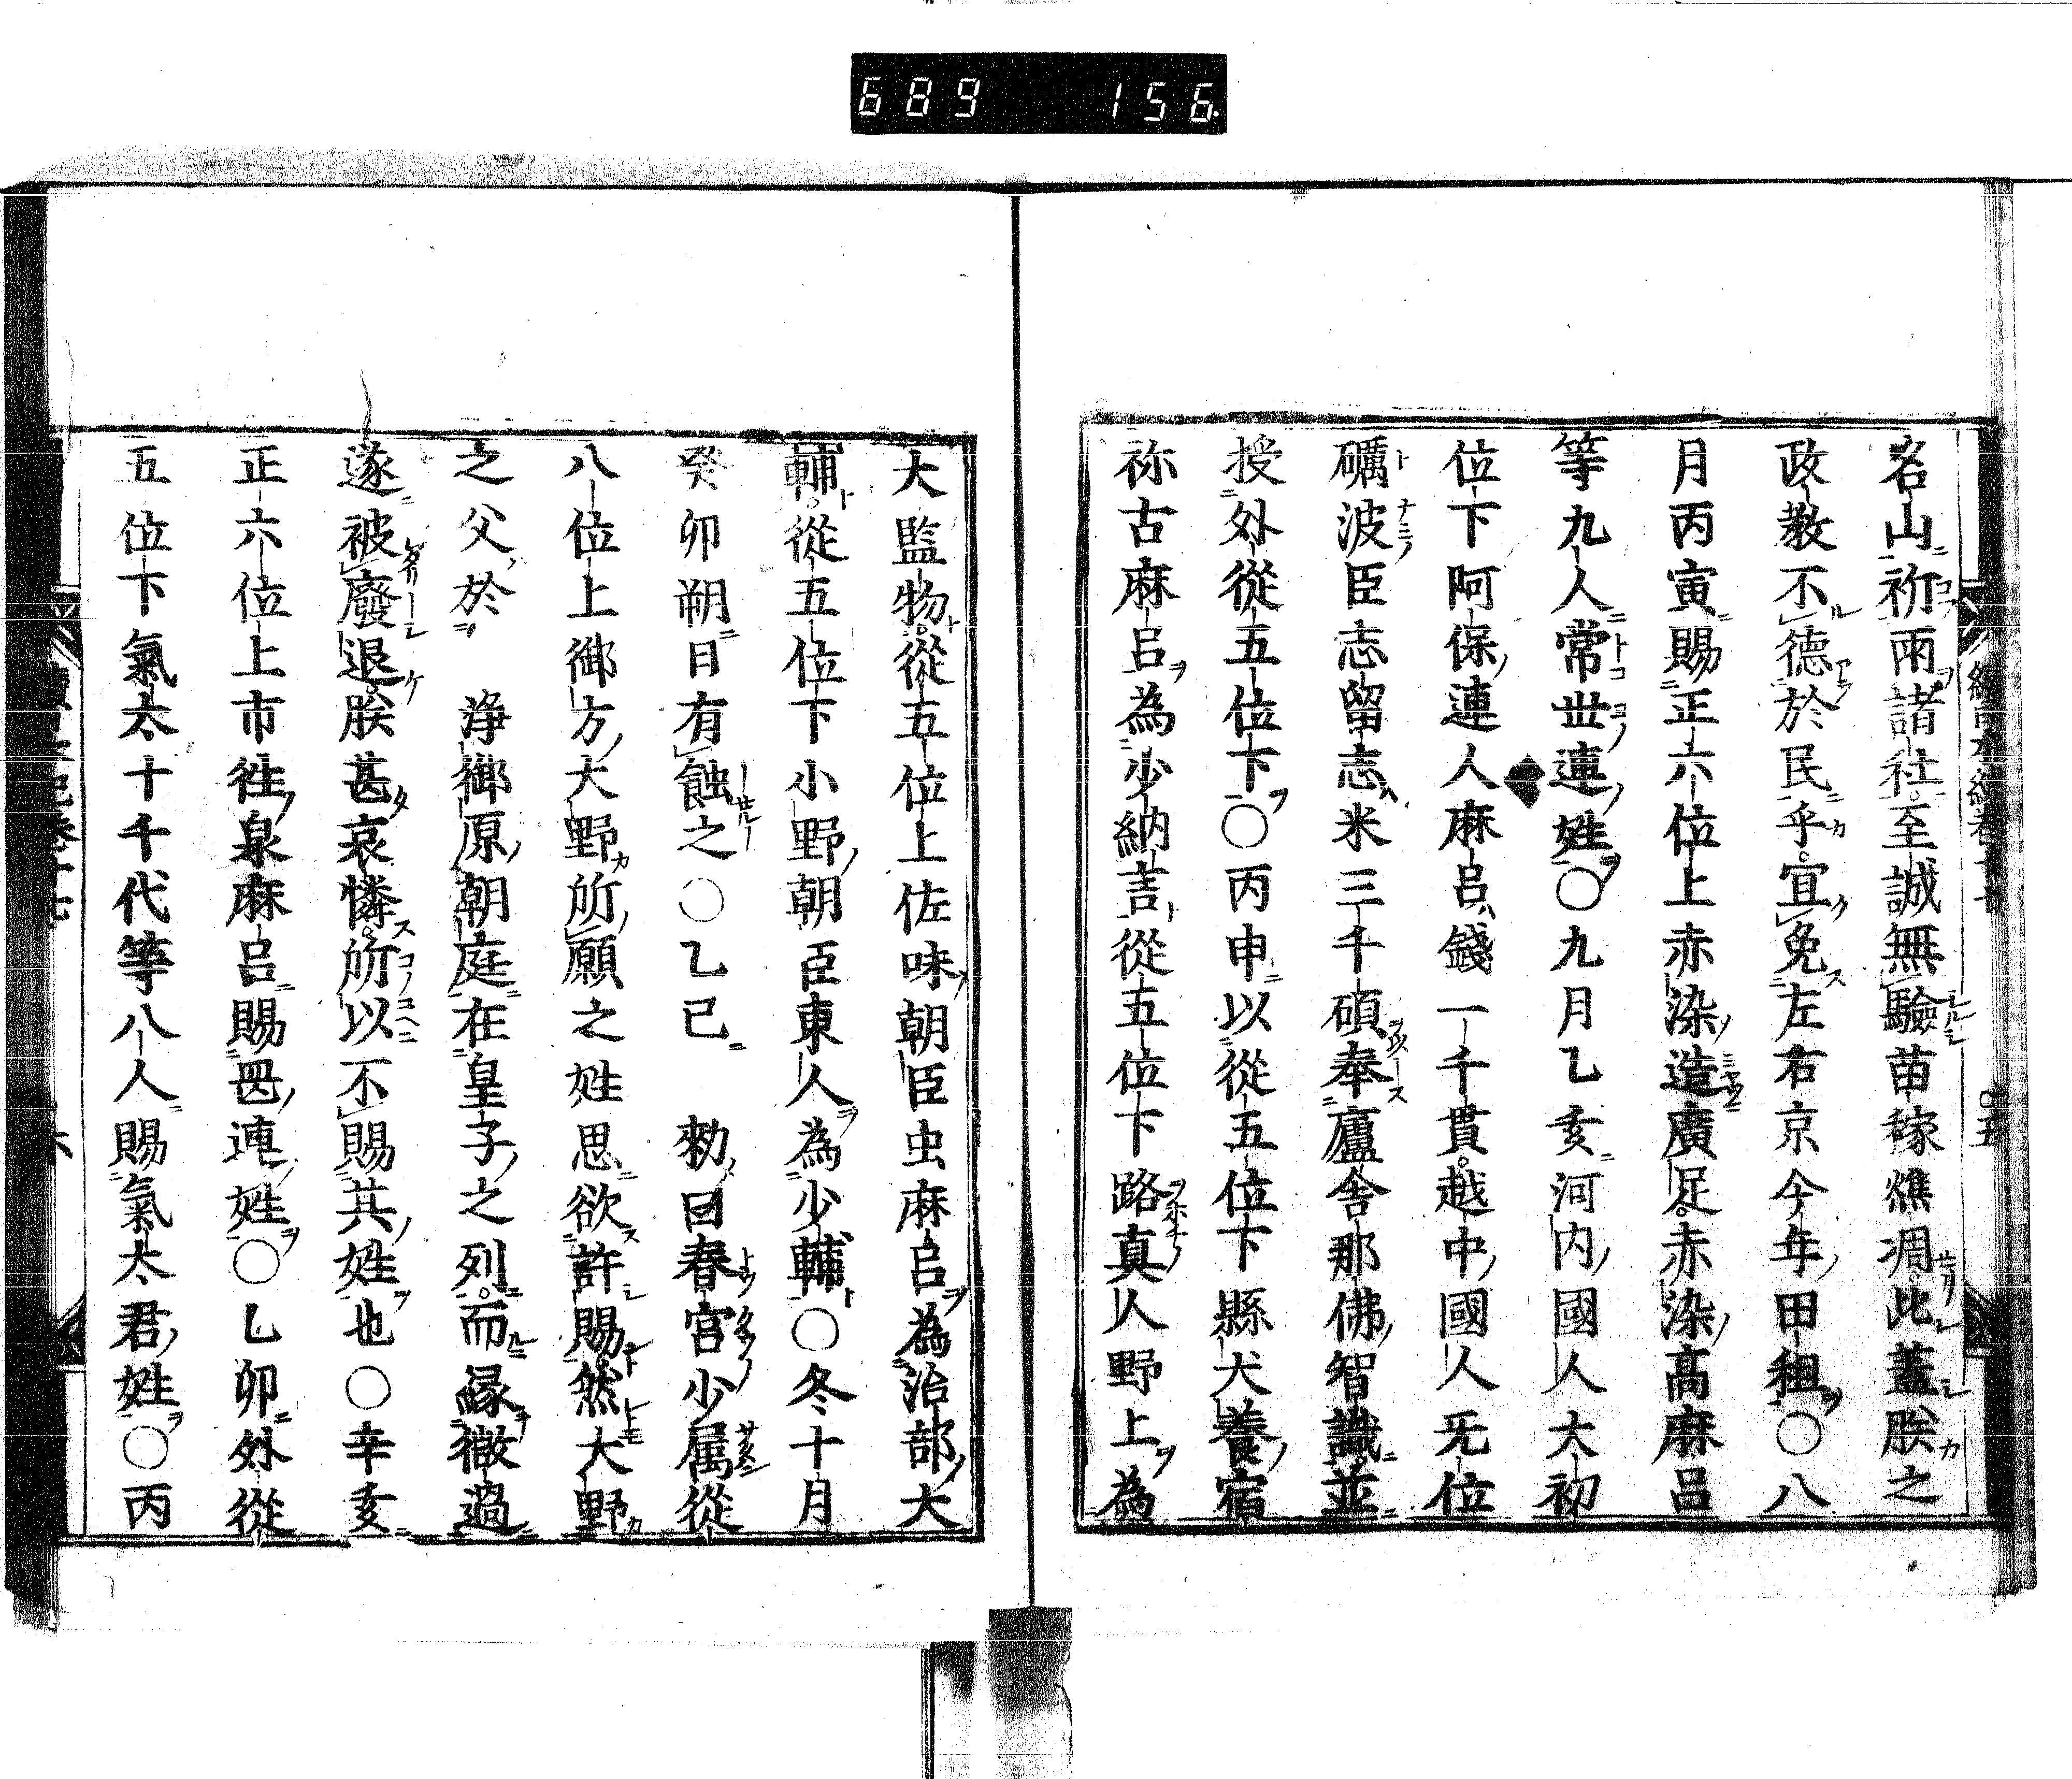 689 156
名山祈雨諸社至誠無驗苗稼燋凋此蓋朕之
政教不德於民乎宜免左右京今年田租〇八
月丙寅賜正六位上赤染造廣足赤染高麻呂
等九人常世連姓〇九月乙亥河内國人大初
位下阿保連人麻呂錢一千貫越中國人无位
礪波臣志留志米三千碩奉廬舍那佛智識並
授外從五位下〇丙申以從五位下縣犬養宿
祢古麻呂為少納言從五位下路真人野上為
大監物從五位上佐味朝臣虫麻呂為治部大
輔從五位下小野朝臣東人為少輔〇冬十月
癸卯朔日有蝕之〇乙巳 勅曰春宮少属從
八位上御方大野所願之姓思欲許賜然大野
之父於 淨御原朝庭在皇子之列而緣微過
遂被廢退朕甚哀憐所以不賜其姓也〇辛亥
正六位上市徃泉麻呂賜岡連姓〇乙卯外從
五位下氣太十千代等八人賜氣太君姓〇丙